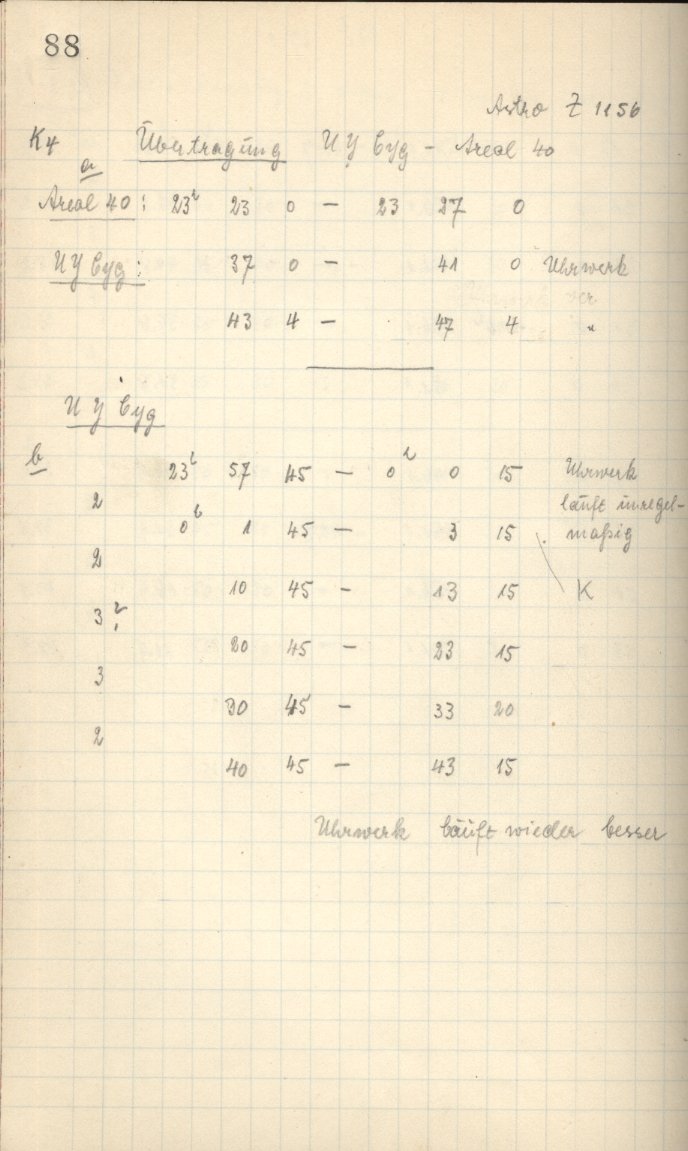 88
Astro Z 1156
K4 Übertragung UY Cyg - Areal 40
a
Areal 40 : 23h 23 0 — 23 27 0
UY Cyg : 37 0 — 41 0 Uhrwerk
43 4 — 47 4 "
UY Cyg
b
23h 57 45 — 0h 0 15 Uhrwerk
2 läuft unregel-
0h 1 45 — 3 15 mäßig
2
10 45 — 13 15 K
3?
20 45 — 23 15
3
30 45 — 33 20
2
40 45 — 43 15
Uhrwerk läuft wieder besser